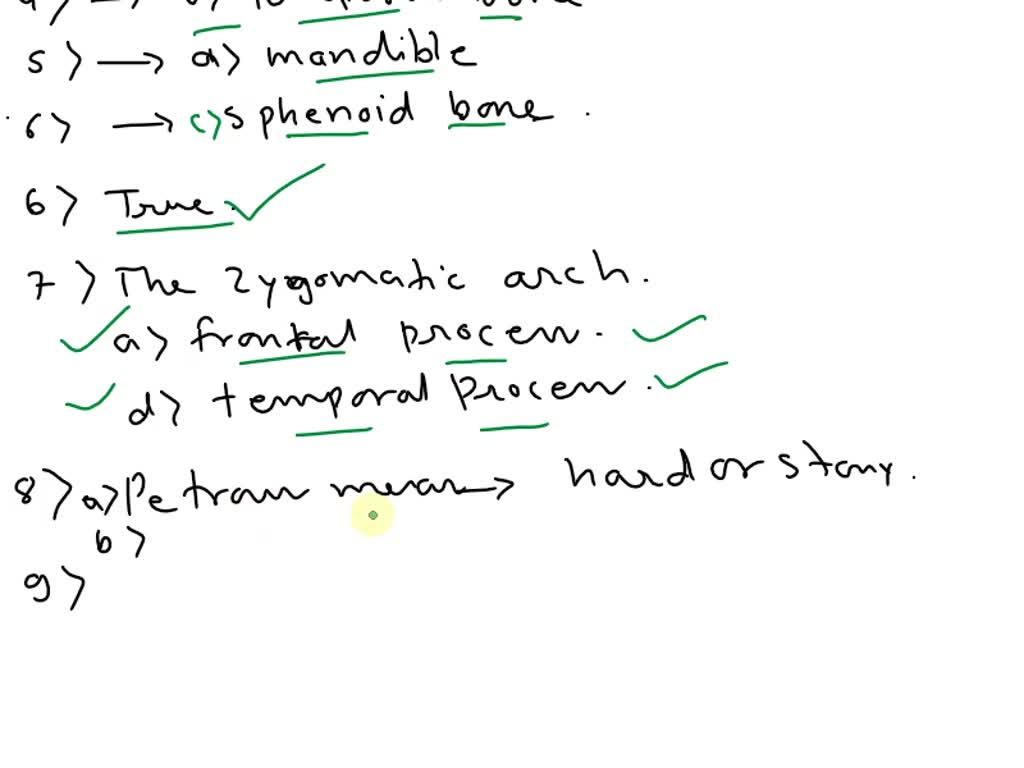 5 > → a> mandible
6> → c>sphenoid bone.
6> True.
7 > The Zygomatic arch.
a> frontal process.
d> temporal Process.
8>a>Petrous means → hard or stony.
b>
9>